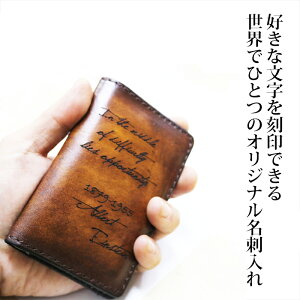 好きな文字を刻印できる
世界でひとつのオリジナル名刺入れ
In the middle
of difficulty
lies opportunity
1879-1955
Albert
Einstein